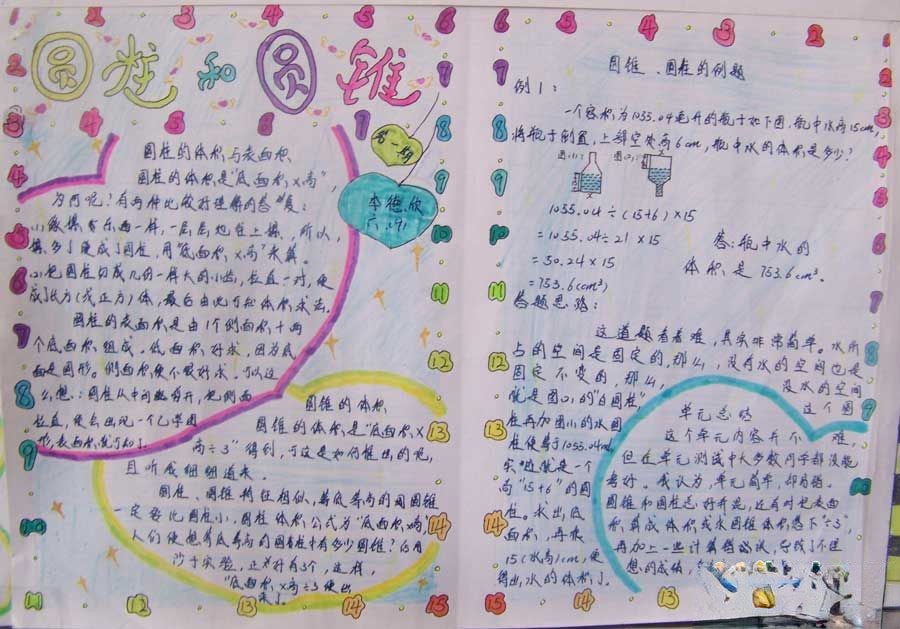 圆柱和圆锥
第一期
李德欣
六.(9)
圆柱的体积与表面积
圆柱的体积是“底面积×高”,
为何呢?有两种比较好理解的答复:
一样,一层层地往上摞,所以,
摞多了便成了圆柱,用“底面积×高”来算。
(2)把圆柱切成几份一样大的小,拉直一对,便
成了长方(或正方)体,最后由此可把体积求出。
圆柱的表面积是由1个侧面积+两
个底面积组成。底面积好求,因为底
面是圆形。侧面积便不很好求。可以这
么想:圆柱从中间剪开,把侧面
拉直,便会出现一个几乎圆
形,表面积就可知了。
圆锥的体积
圆锥的体积是“底面积×
高÷3”得到,可这是如何推出的呢,
且听我细细道来。
圆柱、圆锥特征相似,等底等高的圆圆锥
一定要比圆柱小,圆柱体积公式为“底面积×高”,
人们便想等底等高的圆柱中有多少圆锥?
沙子实验,正好有3个,这样,
“底面积×高÷3”便出
来了。
圆锥、圆柱的例题
例1:
一个容积为1055.04毫升的瓶子如下图,瓶中水高15cm,
将瓶子倒置,上部空处高6cm,瓶中水的体积是多少?
图(1): 图(2):
1055.04÷(15+6)×15
=1055.04÷21×15
=50.24×15
=753.6(cm³)
答:瓶中水的
体积是753.6cm³。
答题思路:
这道题看着难,其实非常简单。水所
占的空间是固定的,那么,没有水的空间也是
固定不变的,那么,没水的空间
就是图(2)的“白圆柱”,这个圆
柱再加图(1)的水圆
柱便等于1055.04ml,
实也就是一个
高“15+6”的圆
柱。求出底
面积,再乘
15(水高)cm,便
得出水的体积了。
单元总结
这个单元内容并不难,
但在单元测试中大多数同学都没能
考好。我认为,单元简单,却易错。
圆锥和圆柱总好弄混,还有时把表面
积算成体积或求圆锥体积忘了“÷3”,
再加上一些计算错误,导致了不理
想的成绩,